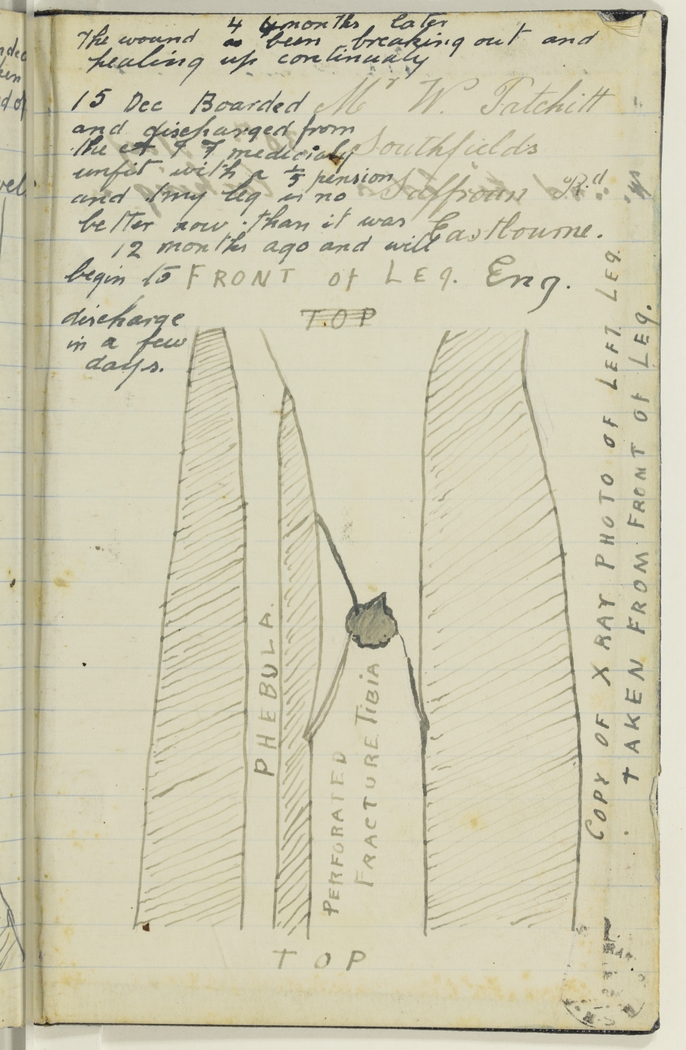 4 months later
The wound as been breaking out and
healing up continualy
15 Dec Boarded
and discharged from
the
unfit with a 1/5 pension
and my leg is no
better now than it was
12 months ago and will
begin to
discharge
in a few
days.
Mr W. Tatchitt
Southfields
Saffrouns Rd
Eastbourne.
Eng.
FRONT of LEG.
TOP
PHEBULA.
PERFORATED
FRACTURE TIBIA
TOP
COPY OF X RAY PHOTO OF LEFT LEG.
TAKEN FROM FRONT OF LEG.